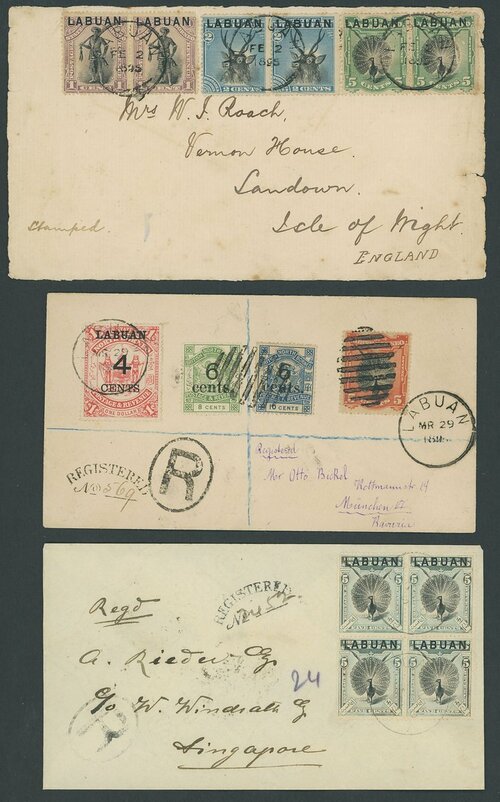 LABUAN LABUAN LABUAN LABUAN LABUAN LABUAN
FE 2
1895
1 CENT 2 CENTS 5 CENTS
Mrs W. J. Roach,
Vernon House.
Sandown.
Isle of Wight.
ENGLAND
Stamped.
LABUAN
4
CENTS
POSTAGE & REVENUE
ONE DOLLAR
6
cents.
8 CENTS
6
cents.
10 CENTS
LABUAN
MR 29
REGISTERED
No 569
R
Registered
Mr Otto Bickel
München
Bavaria
LABUAN LABUAN
5 5
FIVE CENTS
LABUAN LABUAN
5 5
REGISTERED
Regd
A. Rieder Esq
24
c/o W. Windrath
R
Singapore